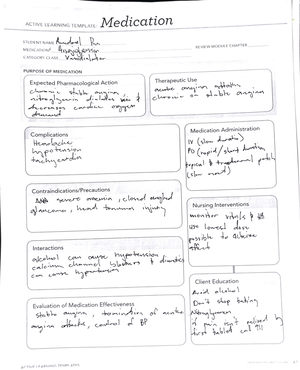 ACTIVE LEARNING TEMPLATE: Medication
STUDENT NAME
MEDICATION Nitroglycerin
REVIEW MODULE CHAPTER
CATEGORY CLASS Vasodilator
PURPOSE OF MEDICATION
Expected Pharmacological Action
chronic stable angina,
nitroglycerin dilates &
decreases cardiac oxygen
demand
Therapeutic Use
acute angina attacks
chronic or stable angina
Complications
Headache
hypotension
tachycardia
Medication Administration
IV (slow duration)
PO (rapid/short duration)
topical & transdermal patch
(slow onset)
Contraindications/Precautions
severe anemia, closed angled
glaucoma, head trauma injury
Nursing Interventions
monitor vitals &
use lowest dose
possible to achieve
effect
Interactions
alcohol can cause hypotension
calcium channel blockers & diuretics
can cause hypotension
Client Education
Avoid alcohol
Don't stop taking
Nitroglycerin
if pain isn't relieved by
first tablet call 911
Evaluation of Medication Effectiveness
stable angina, termination of acute
angina attacks, control of BP
ACTIVE LEARNING TEMPLATES